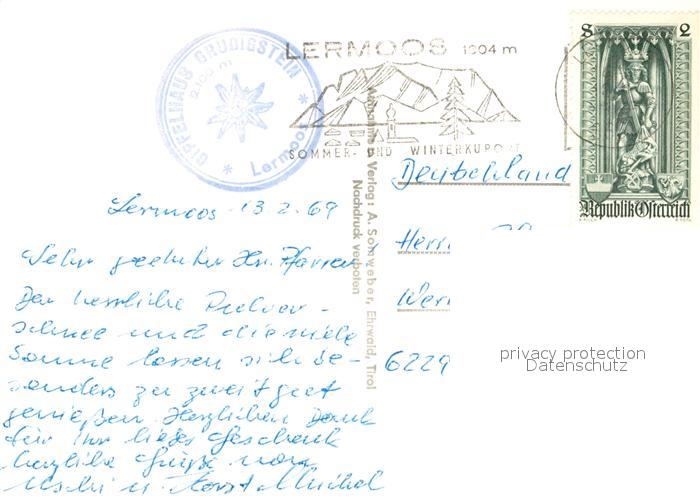 GIPFELHAUS GRUBIGSTEIN
2100 m
* Lermoos *
LERMOOS 1004 m
SOMMER- UND WINTERKURORT
S 2
Republik Österreich
Aufnahme u. Verlag: A. Somweber, Ehrwald, Tirol
Nachdruck verboten
Deutschland
Herrn
6229
privacy protection
Datenschutz
Lermoos 13.2.69
Sehr geehrter Hr. Pfarrer
Der herrliche Pulver-
schnee und die viele
Sonne lassen sich be-
sonders zu zweit gut
genießen. Herzlichen Dank
für Ihr liebes Geschenk
herzliche Grüße von
Uschi u. Horst